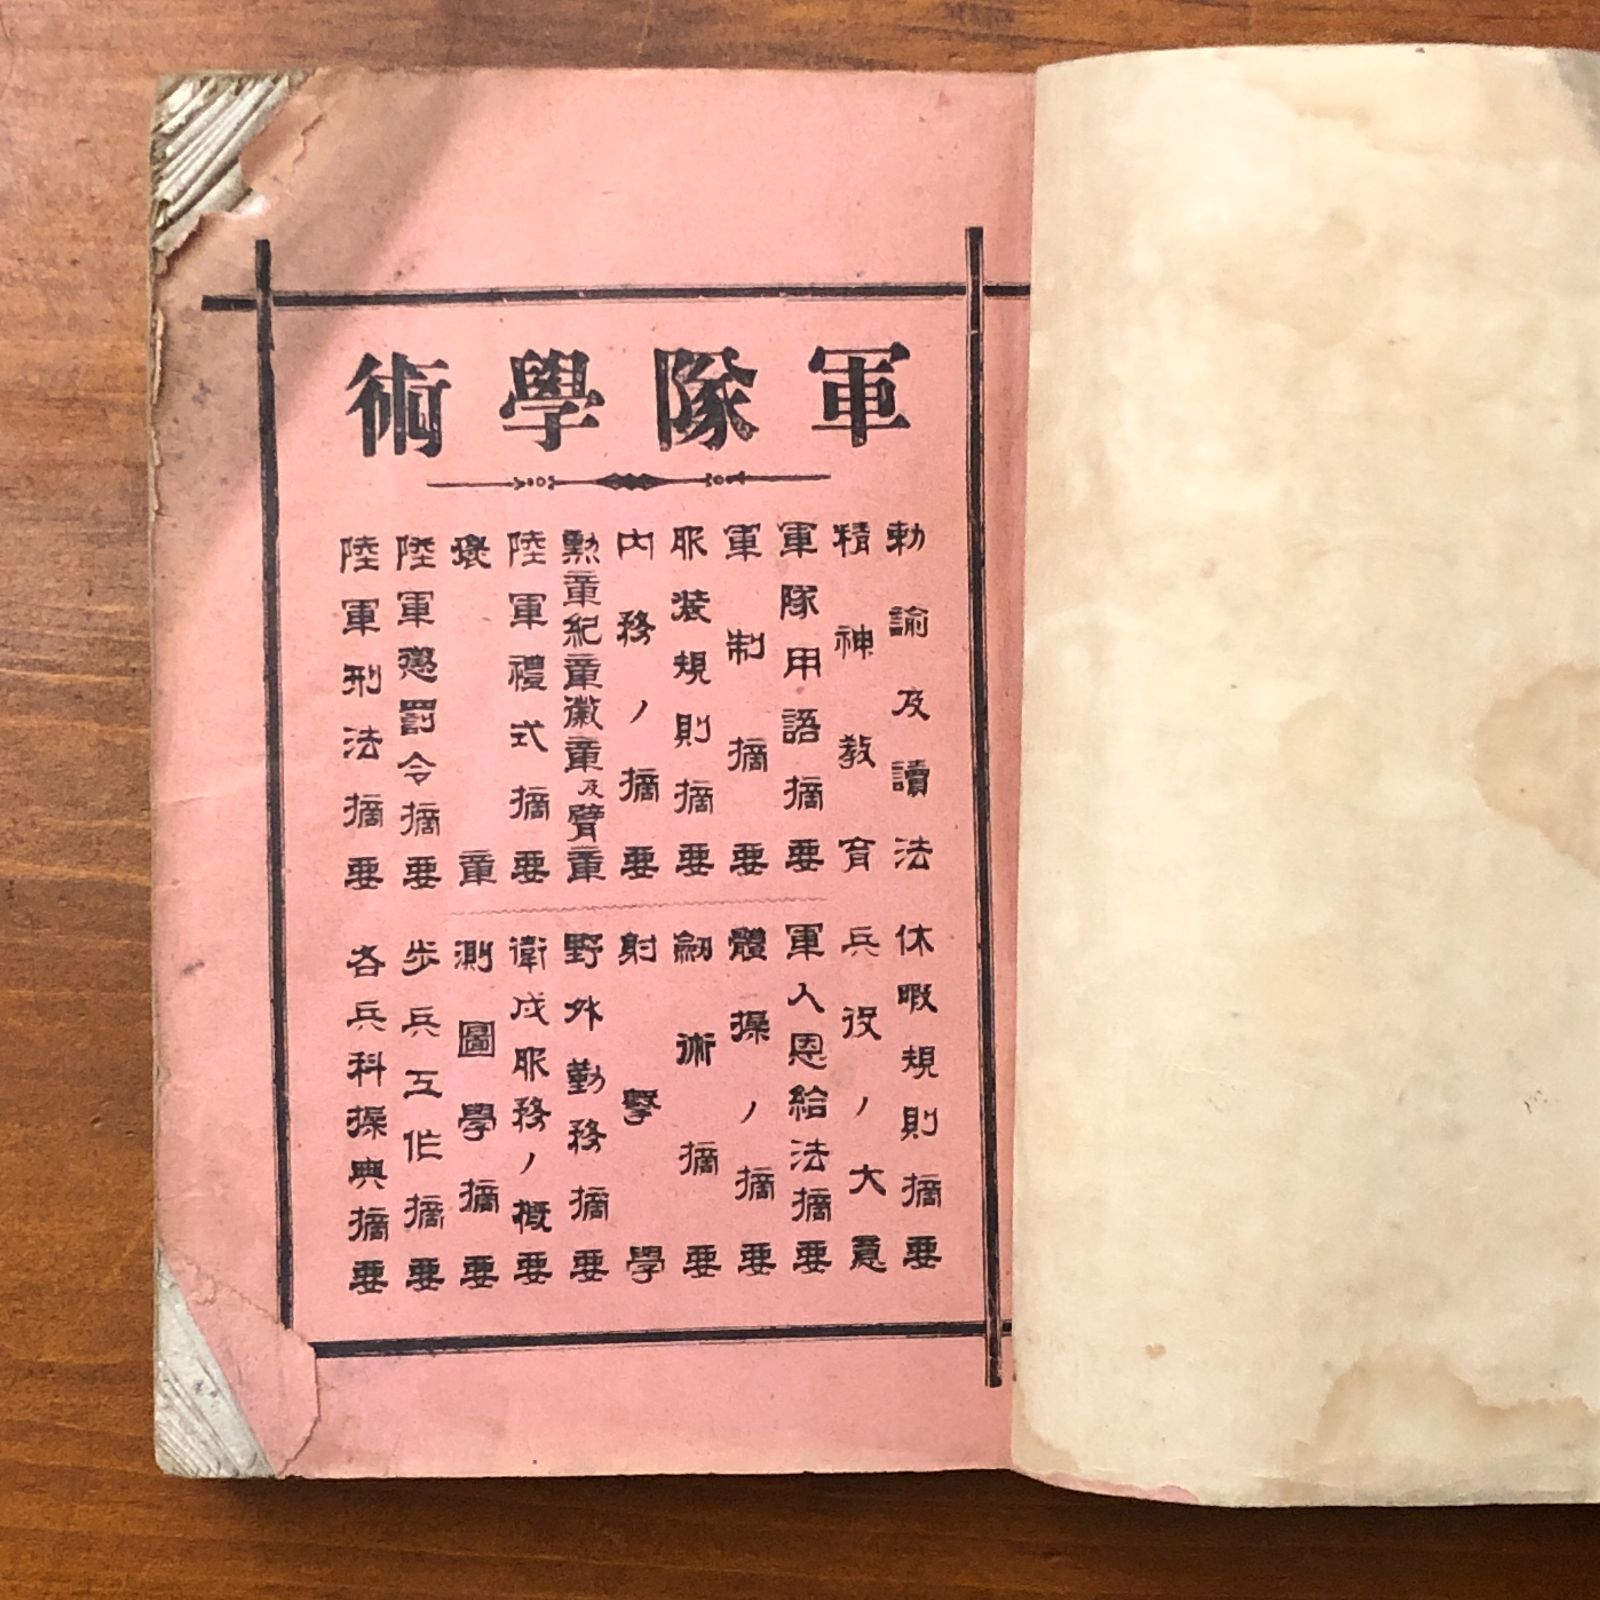 軍隊學術
勅諭及讀法
精神教育
軍隊用語摘要
軍制摘要
服装規則摘要
内務ノ摘要
勲章紀章徽章及臂章
陸軍禮式摘要
褒章
陸軍懲罰令摘要
陸軍刑法摘要
休暇規則摘要
兵役ノ大意
軍人恩給法摘要
體操ノ摘要
劔術摘要
射擊學
野外勤務摘要
衛戍服務ノ概要
測圖學摘要
歩兵工作摘要
各兵科操典摘要